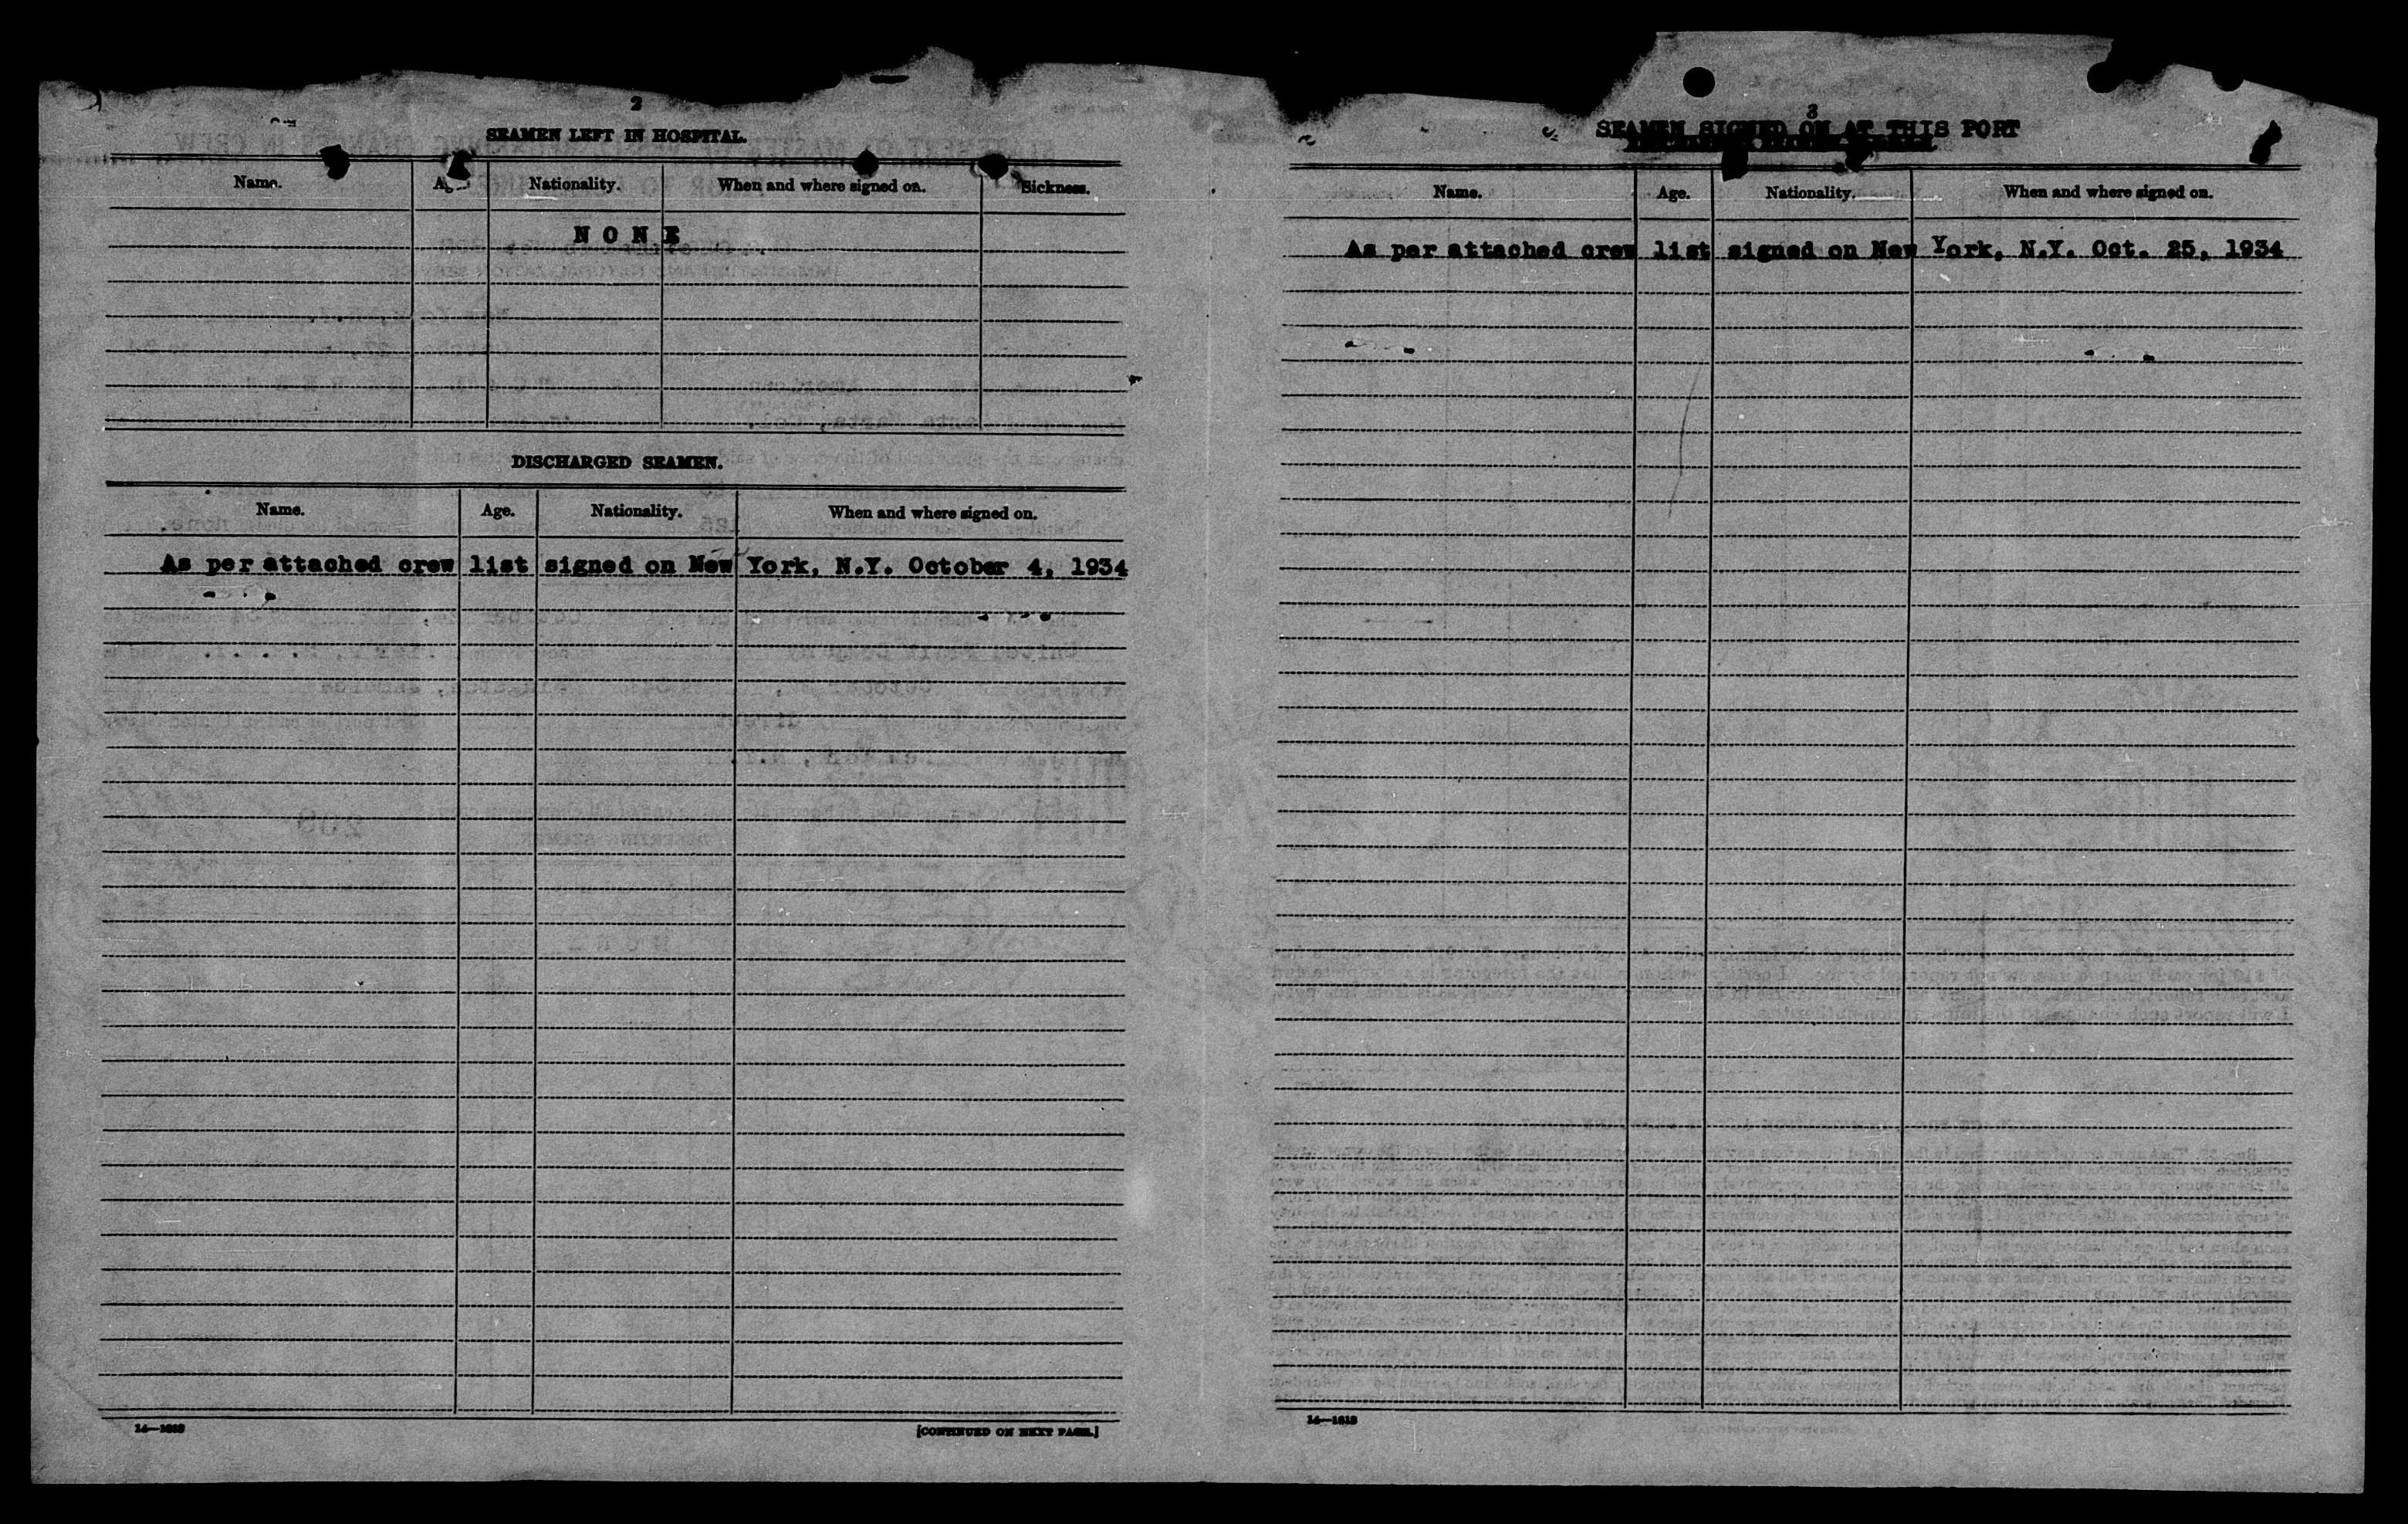 2
SEAMEN LEFT IN HOSPITAL.
Name. Age. Nationality. When and where signed on. Sickness.
NONE
DISCHARGED SEAMEN.
Name. Age. Nationality. When and where signed on.
As per attached crew list signed on New York, N.Y. October 4, 1934
14—1613
[CONTINUED ON NEXT PAGE.]
3
SEAMEN SIGNED ON AT THIS PORT
Name. Age. Nationality. When and where signed on.
As per attached crew list signed on New York, N.Y. Oct. 25, 1934
14—1613